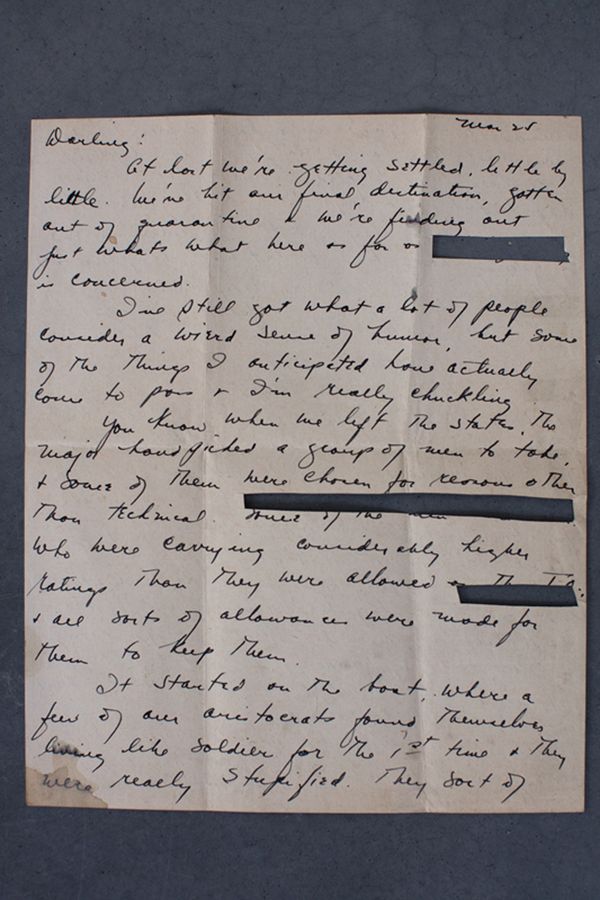 Mar 25
Darling:
At last we're getting settled, little by
little. We've hit our final destination, gotten
out of quarantine & we're finding out
just whats what here as far as
is concerned.
I've still got what a lot of people
consider a wierd sense of humor, but some
of the things I anticipated have actually
come to pass & I'm really chuckling.
You know when we left the states, the
major handpicked a group of men to take,
& some of them were chosen for reasons other
than technical. Some of the men
who were carrying considerably higher
ratings than they were allowed
& all sorts of allowances were made for
them to keep them.
It started on the boat, where a
few of our aristocrats found themselves
living like soldier for the 1st time & they
were really stupified. They sort of